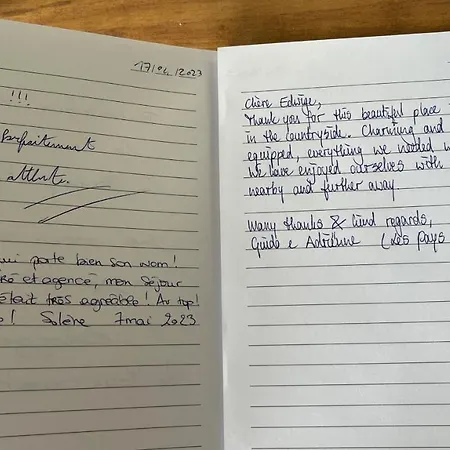 17/04/2023
!!!
Parfaitement
ui porte bien son nom!
et agencé, mon séjour
était très agréable! Au top!
! Solène 7 mai 2023
Chère Edwige,
Thank you for this beautiful place
in the countryside. Charming and
equipped, everything we needed
we have enjoyed ourselves with
nearby and further away.
Many thanks & kind regards,
Guido e Adriënne (Les Pays